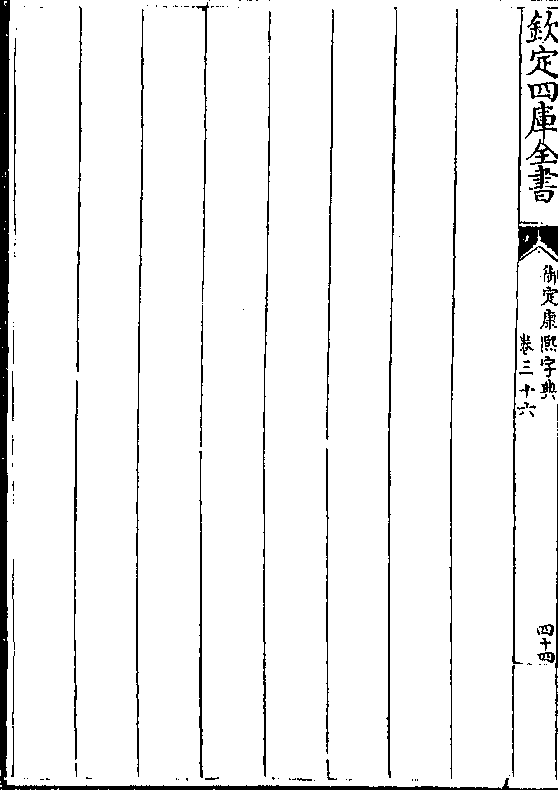 欽定四庫全書
御定康熙字典
卷三十六
四十四